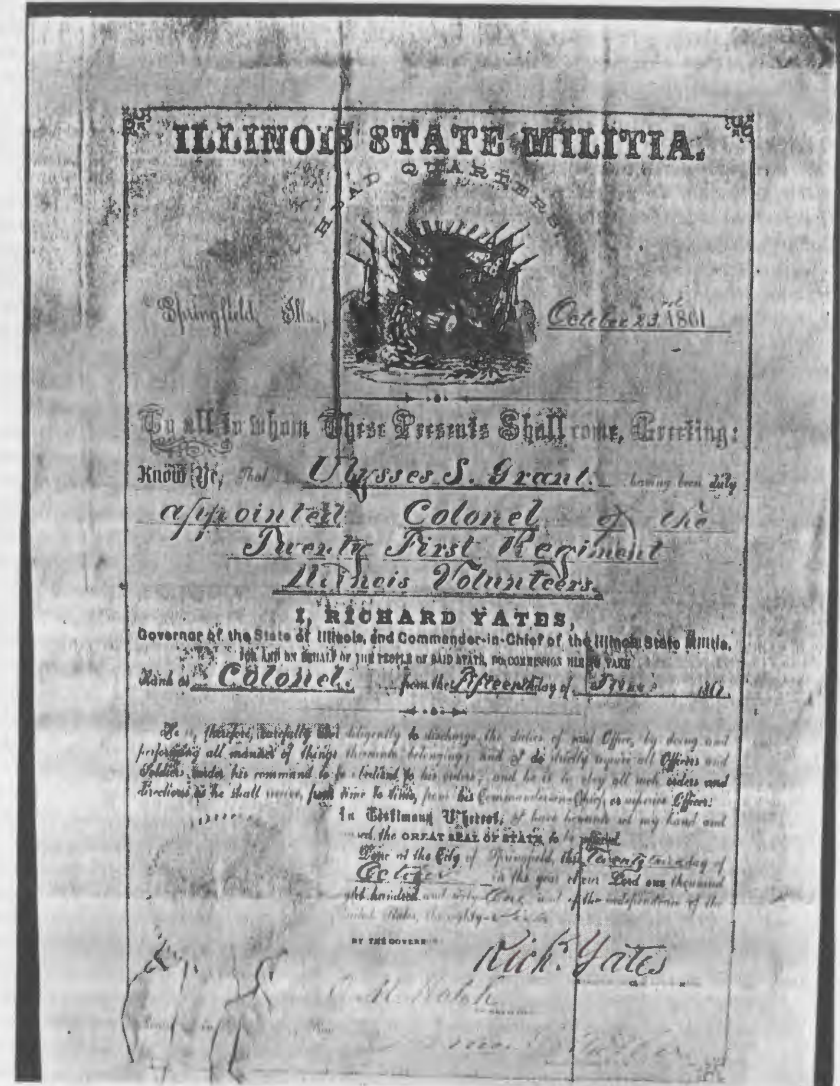 ILLINOIS STATE MILITIA.
HEAD QUARTERS.
Springfield, Ills., October 23rd 1861
To all to whom These Presents Shall come, Greeting:
Know Ye, That Ulysses S. Grant. having been duly
appointed Colonel of the
Twenty First Regiment
Illinois Volunteers.
I, RICHARD YATES,
Governor of the State of Illinois, and Commander-in-Chief of the Illinois State Militia,
FOR AND ON BEHALF OF THE PEOPLE OF SAID STATE, DO COMMISSION HIM TO TAKE
Rank as Colonel. from the Fifteenth day of June 1861.
He is, therefore, carefully and diligently to discharge the duties of said Office, by doing and
performing all manner of things thereunto belonging; and I do strictly require all Officers and
Soldiers under his command to be obedient to his orders; and he is to obey all such orders and
directions as he shall receive, from time to time, from his Commander-in-Chief, or superior Officer.
In Testimony Whereof, I have hereunto set my hand and
the GREAT SEAL OF STATE, to be affixed
Done at the City of Springfield, this Twenty day of
October in the year of our Lord one thousand
eight hundred and sixty One, and of the independence of the
United States, the eighty-
BY THE GOVERN
Rich. Yates
O. M. Hatch